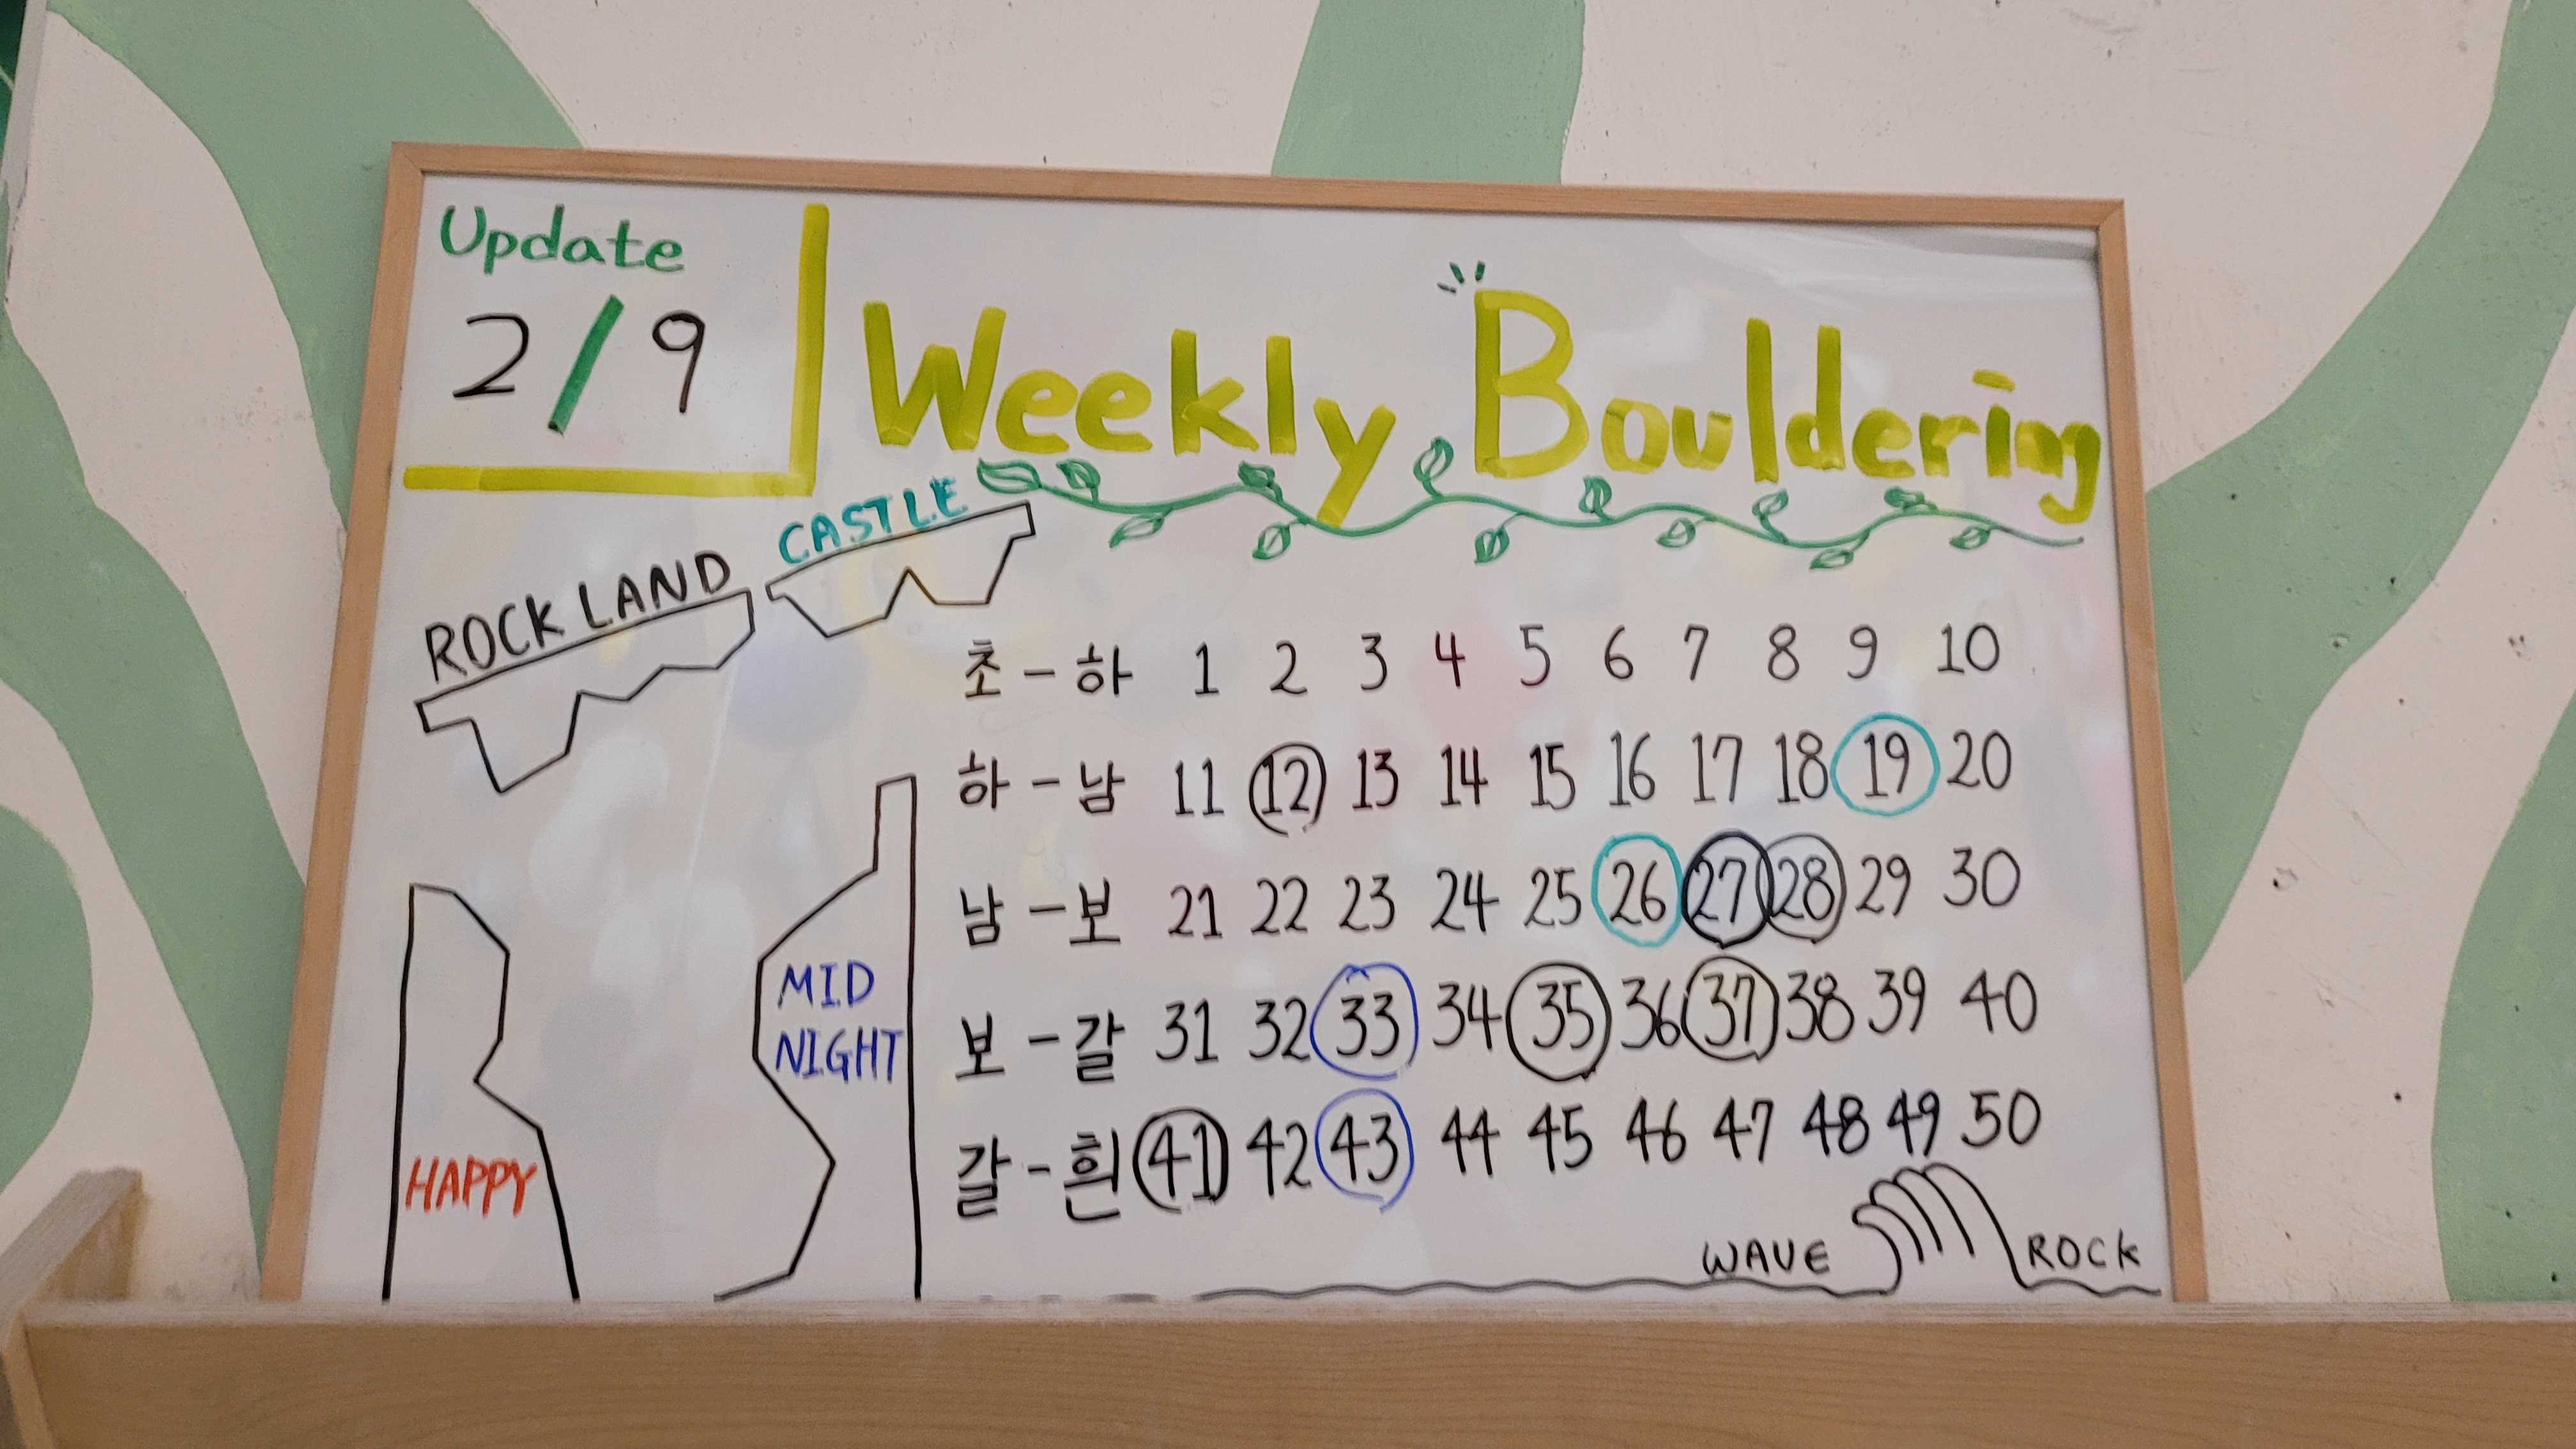 Update
2/9
Weekly Bouldering
CASTLE
ROCK LAND
초-하 1 2 3 4 5 6 7 8 9 10
하-남 11 12 13 14 15 16 17 18 19 20
남-보 21 22 23 24 25 26 27 28 29 30
보-갈 31 32 33 34 35 36 37 38 39 40
갈-흰 41 42 43 44 45 46 47 48 49 50
MID
NIGHT
HAPPY
WAVE ROCK